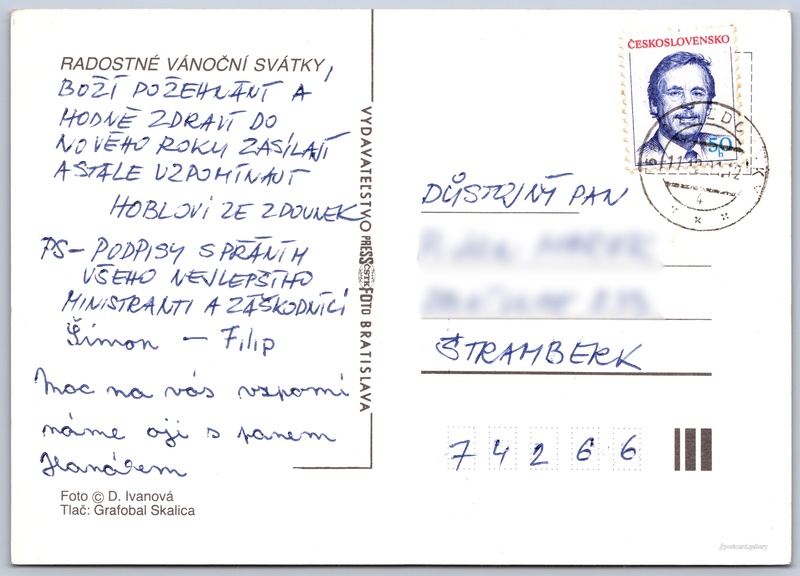 RADOSTNÉ VÁNOČNÍ SVÁTKY,
BOŽÍ POŽEHNÁNÍ A
HODNĚ ZDRAVÍ DO
NOVÉHO ROKU ZASÍLAJÍ
A STÁLE VZPOMÍNAJÍ
HOBLOVI ZE ZDOUNEK
PS – PODPISY S PŘÁNÍM
VŠEHO NEJLEPŠÍHO
MINISTRANTI A ZÁŠKODNÍCI
Šimon – Filip
Moc na vás vzpomí
náme oji s panem
Hanákem
Foto © D. Ivanová
Tlač: Grafobal Skalica
VYDAVATEĽSTVO PRESSFOTO BRATISLAVA
ČSTK
ČESKOSLOVENSKO
50 h
DŮSTOJNÝ PAN
ŠTRAMBERK
74266
postcard.gallery